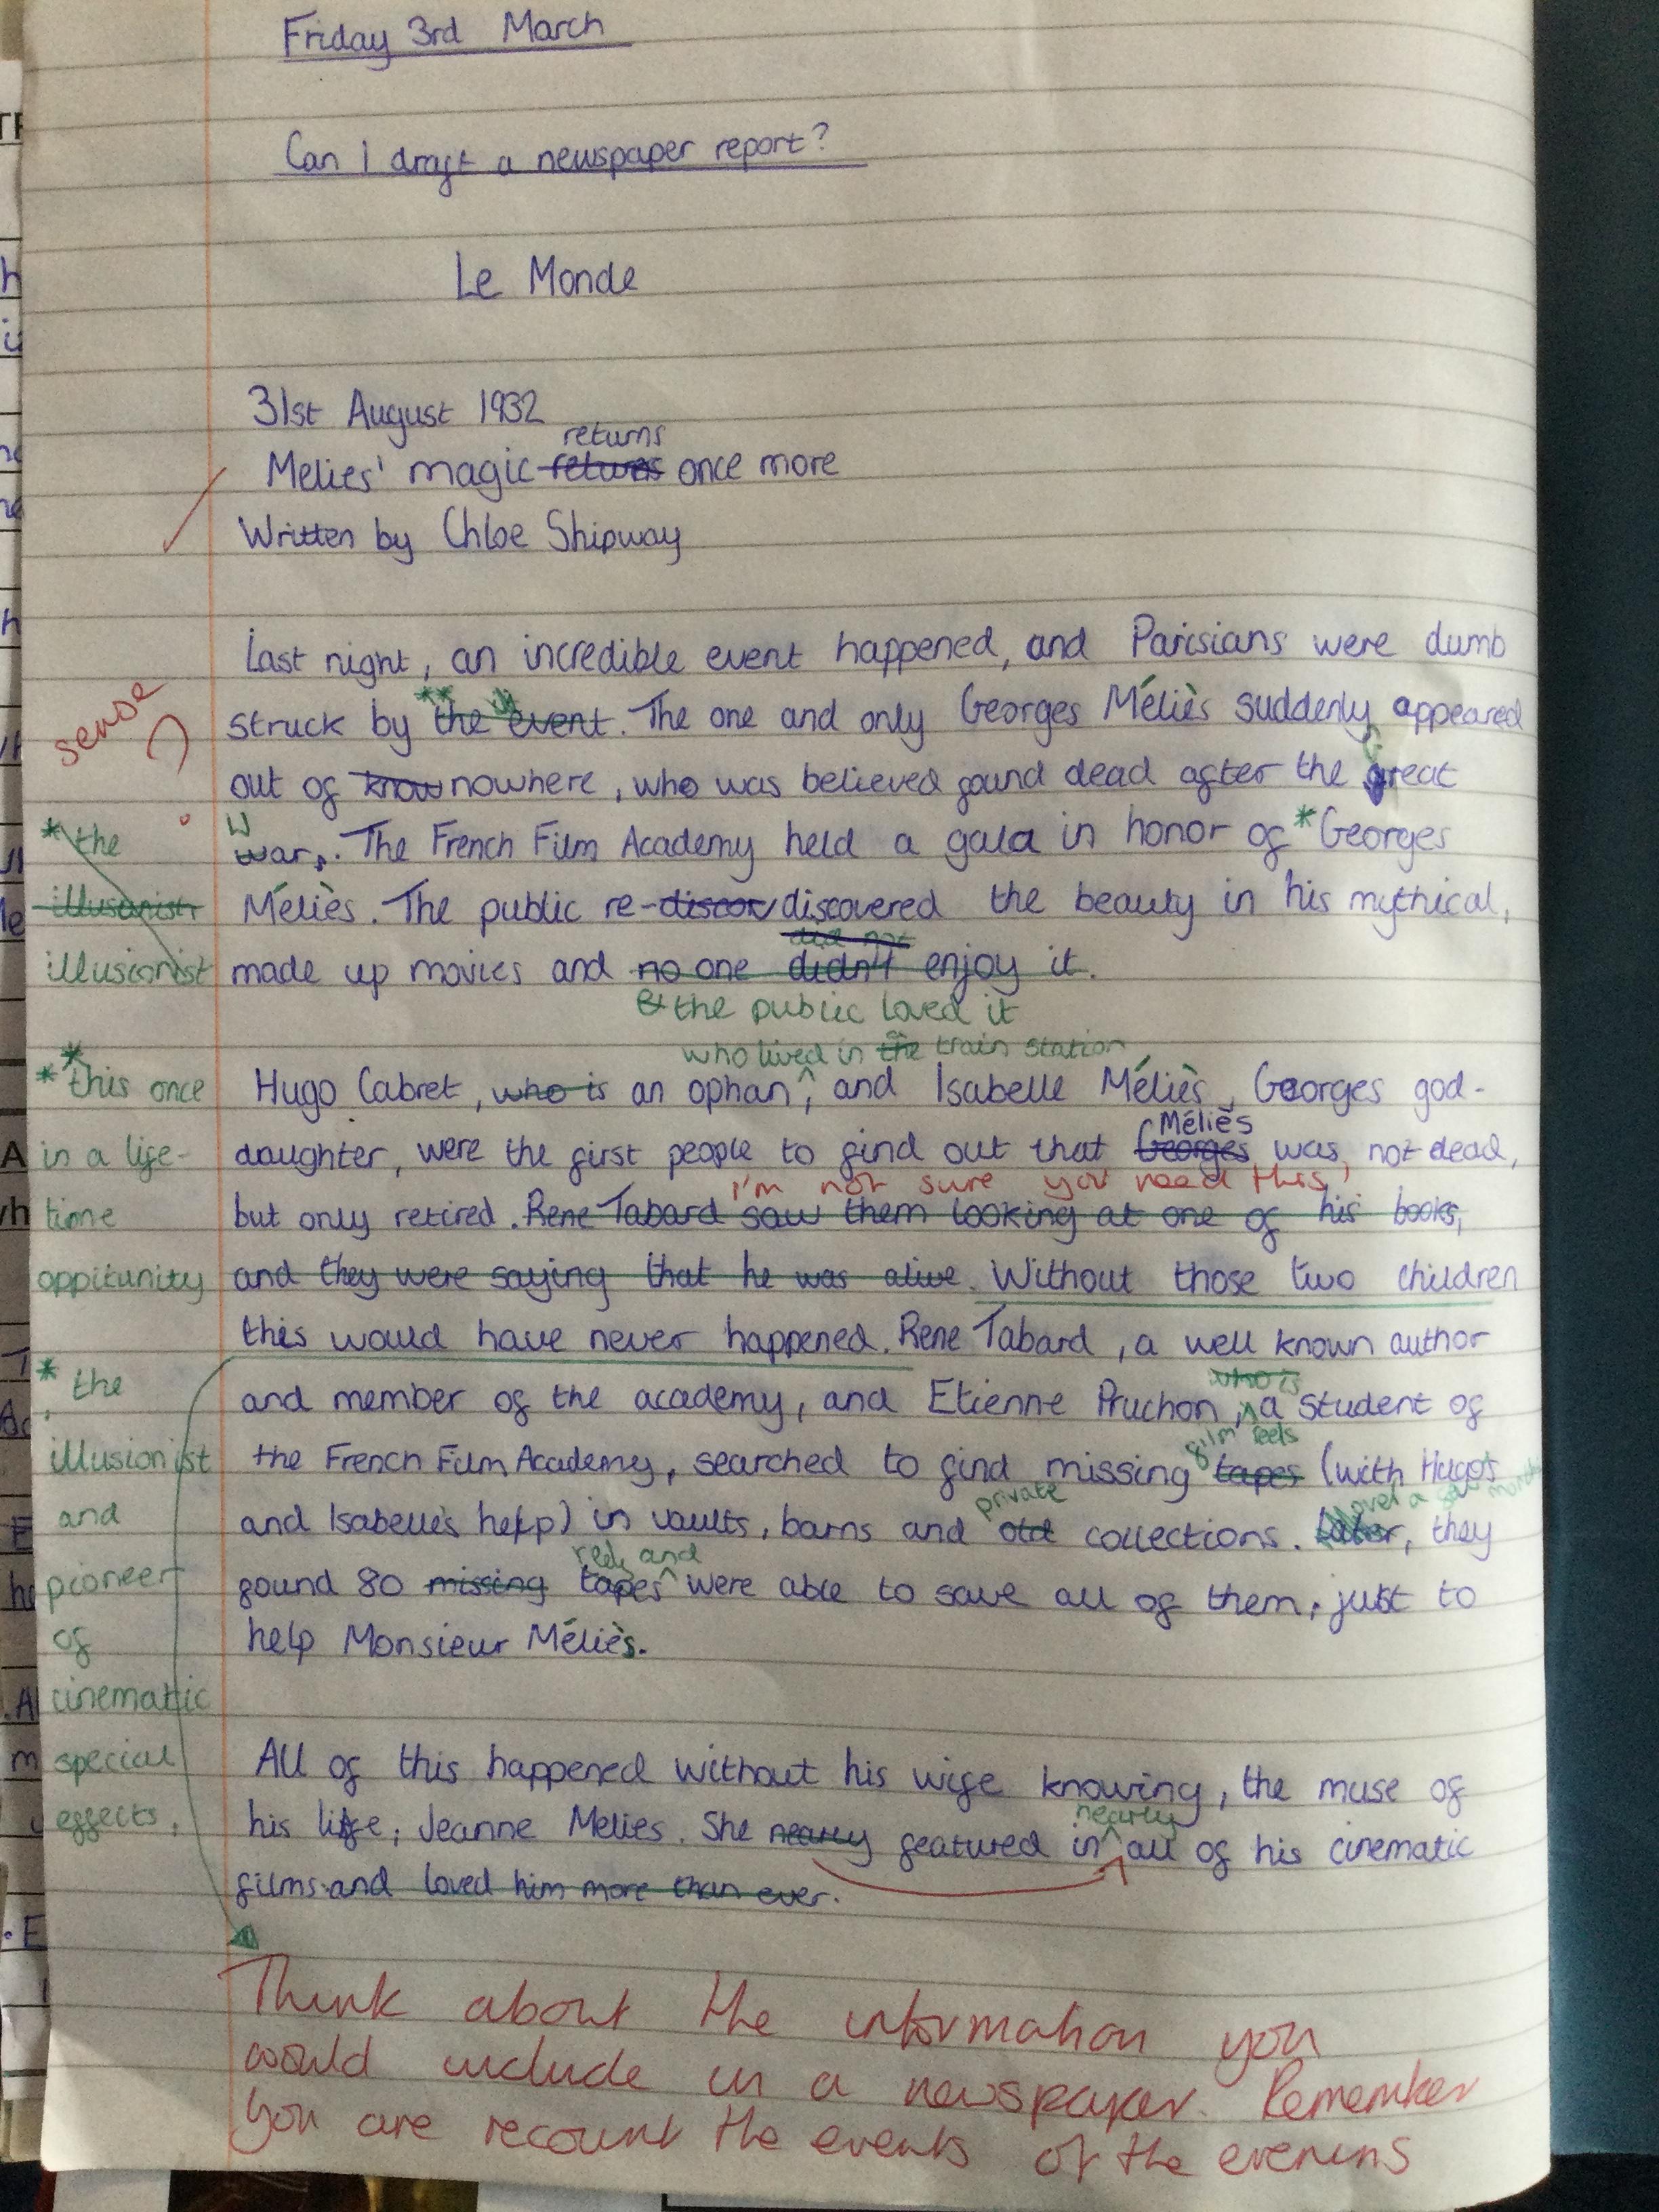 Friday 3rd March
Can I draft a newspaper report?
Le Monde
31st August 1932
returns
Melies' magic retures once more
Written by Chloe Shipway
Last night, an incredible event happened, and Parisians were dumb
struck by ** the event. The one and only Georges Méliès suddenly appeared
sense ?
out of know nowhere, who was believed found dead after the great
W
war. The French Film Academy held a gala in honor of * Georges
* the
illusionist
illusionist
Méliès. The public re-discov discovered the beauty in his mythical,
did not
made up movies and no one didn't enjoy it.
& the public loved it
who lived in the train station
** this once
in a life-
time
oppitunity
Hugo Cabret, who is an ophan ^, and Isabelle Méliès, Georges god-
Méliès
daughter, were the first people to find out that Georges was not dead,
I'm not sure you need this
but only retired. Rene Tabard saw them looking at one of his books,
and they were saying that he was alive. Without those two children
this would have never happened. Rene Tabard, a well known author
* the
illusionist
and
pioneer
of
cinematic
special
effects,
who is
and member of the academy, and Etienne Pruchon, ^ a student of
film reels
the French Film Academy, searched to find missing tapes (with Hugo's
private
over a
and Isabelle's help) in vaults, barns and old collections. Later, they
reels and
found 80 missing tapes ^ were able to save all of them, just to
help Monsieur Méliès.
All of this happened without his wife knowing, the muse of
nearly
his life, Jeanne Melies. She nearly featured in ^ all of his cinematic
films. and loved him more than ever.
Think about the information you
would include in a newspaper. Remember
you are recount the events of the evening